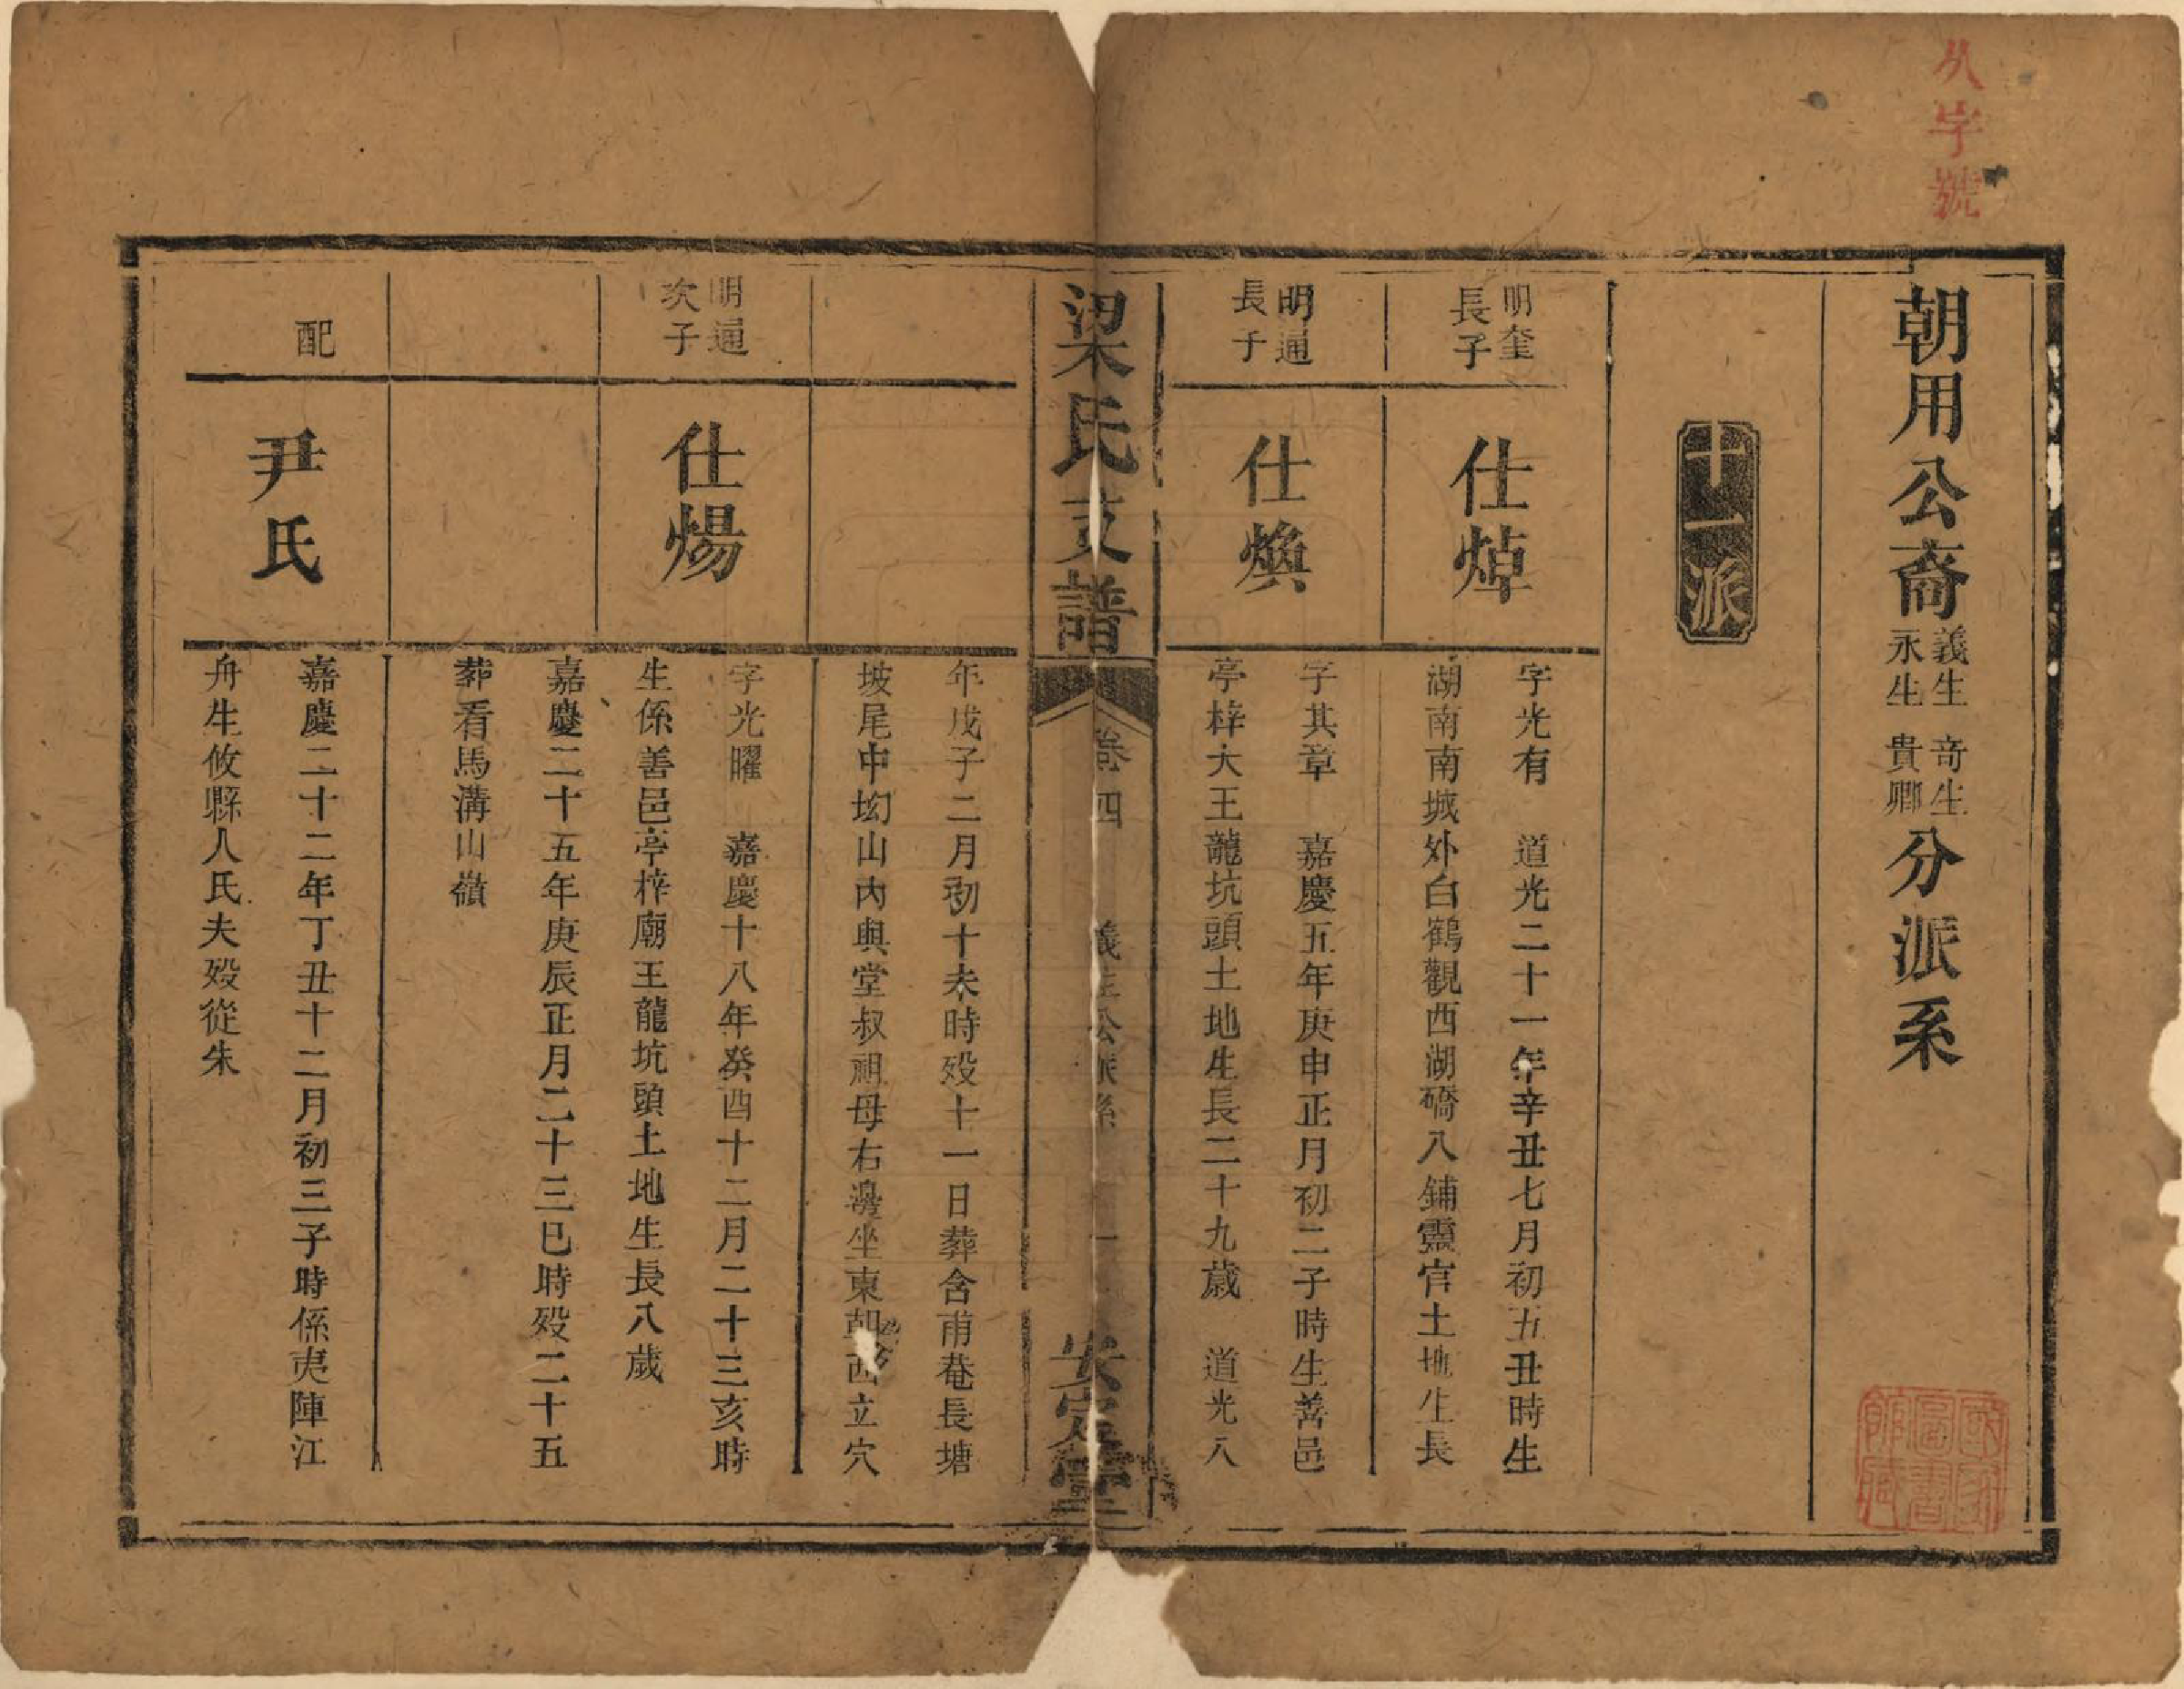 久字號
朝用公裔義生永生 奇生貴卿分派系
十一派
明奎長子
仕焯
字光有 道光二十一年辛丑七月初五丑時生
湖南南城外白鶴觀西湖礄八鋪靈官土地生長
明通長子
仕煥
字其章 嘉慶五年庚申正月初二子時生善邑
亭梓大王龍坑頭土地生長二十九歲 道光八
梁氏支譜
卷四
義生公派系
一
安定堂
年戊子二月初十未時歿十一日葬含甫菴長塘
坡尾中㘭山內與堂叔祖母右邊坐東朝西立穴
明通次子
仕煬
字光曜 嘉慶十八年癸酉十二月二十三亥時
生係善邑亭梓廟王龍坑頭土地生長八歲
嘉慶二十五年庚辰正月二十三巳時歿二十五
葬看馬溝山嶺
配
尹氏
嘉慶二十二年丁丑十二月初三子時係夷陣江
舟生攸縣人氏夫歿從朱
國家圖書館藏